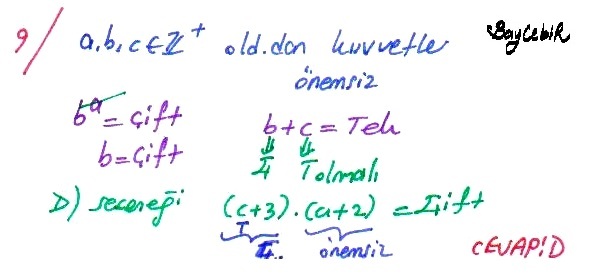 9/ a,b,c ∈ Z⁺ old.dan kuvvetler BayCebiR
önemsiz
bᵃ = Çift b + c = Tek
b = Çift ⇓ ⇓
Ç T olmalı
D) seçeneği (c+3).(a+2) = Çift
T
Ç. önemsiz CEVAP:D